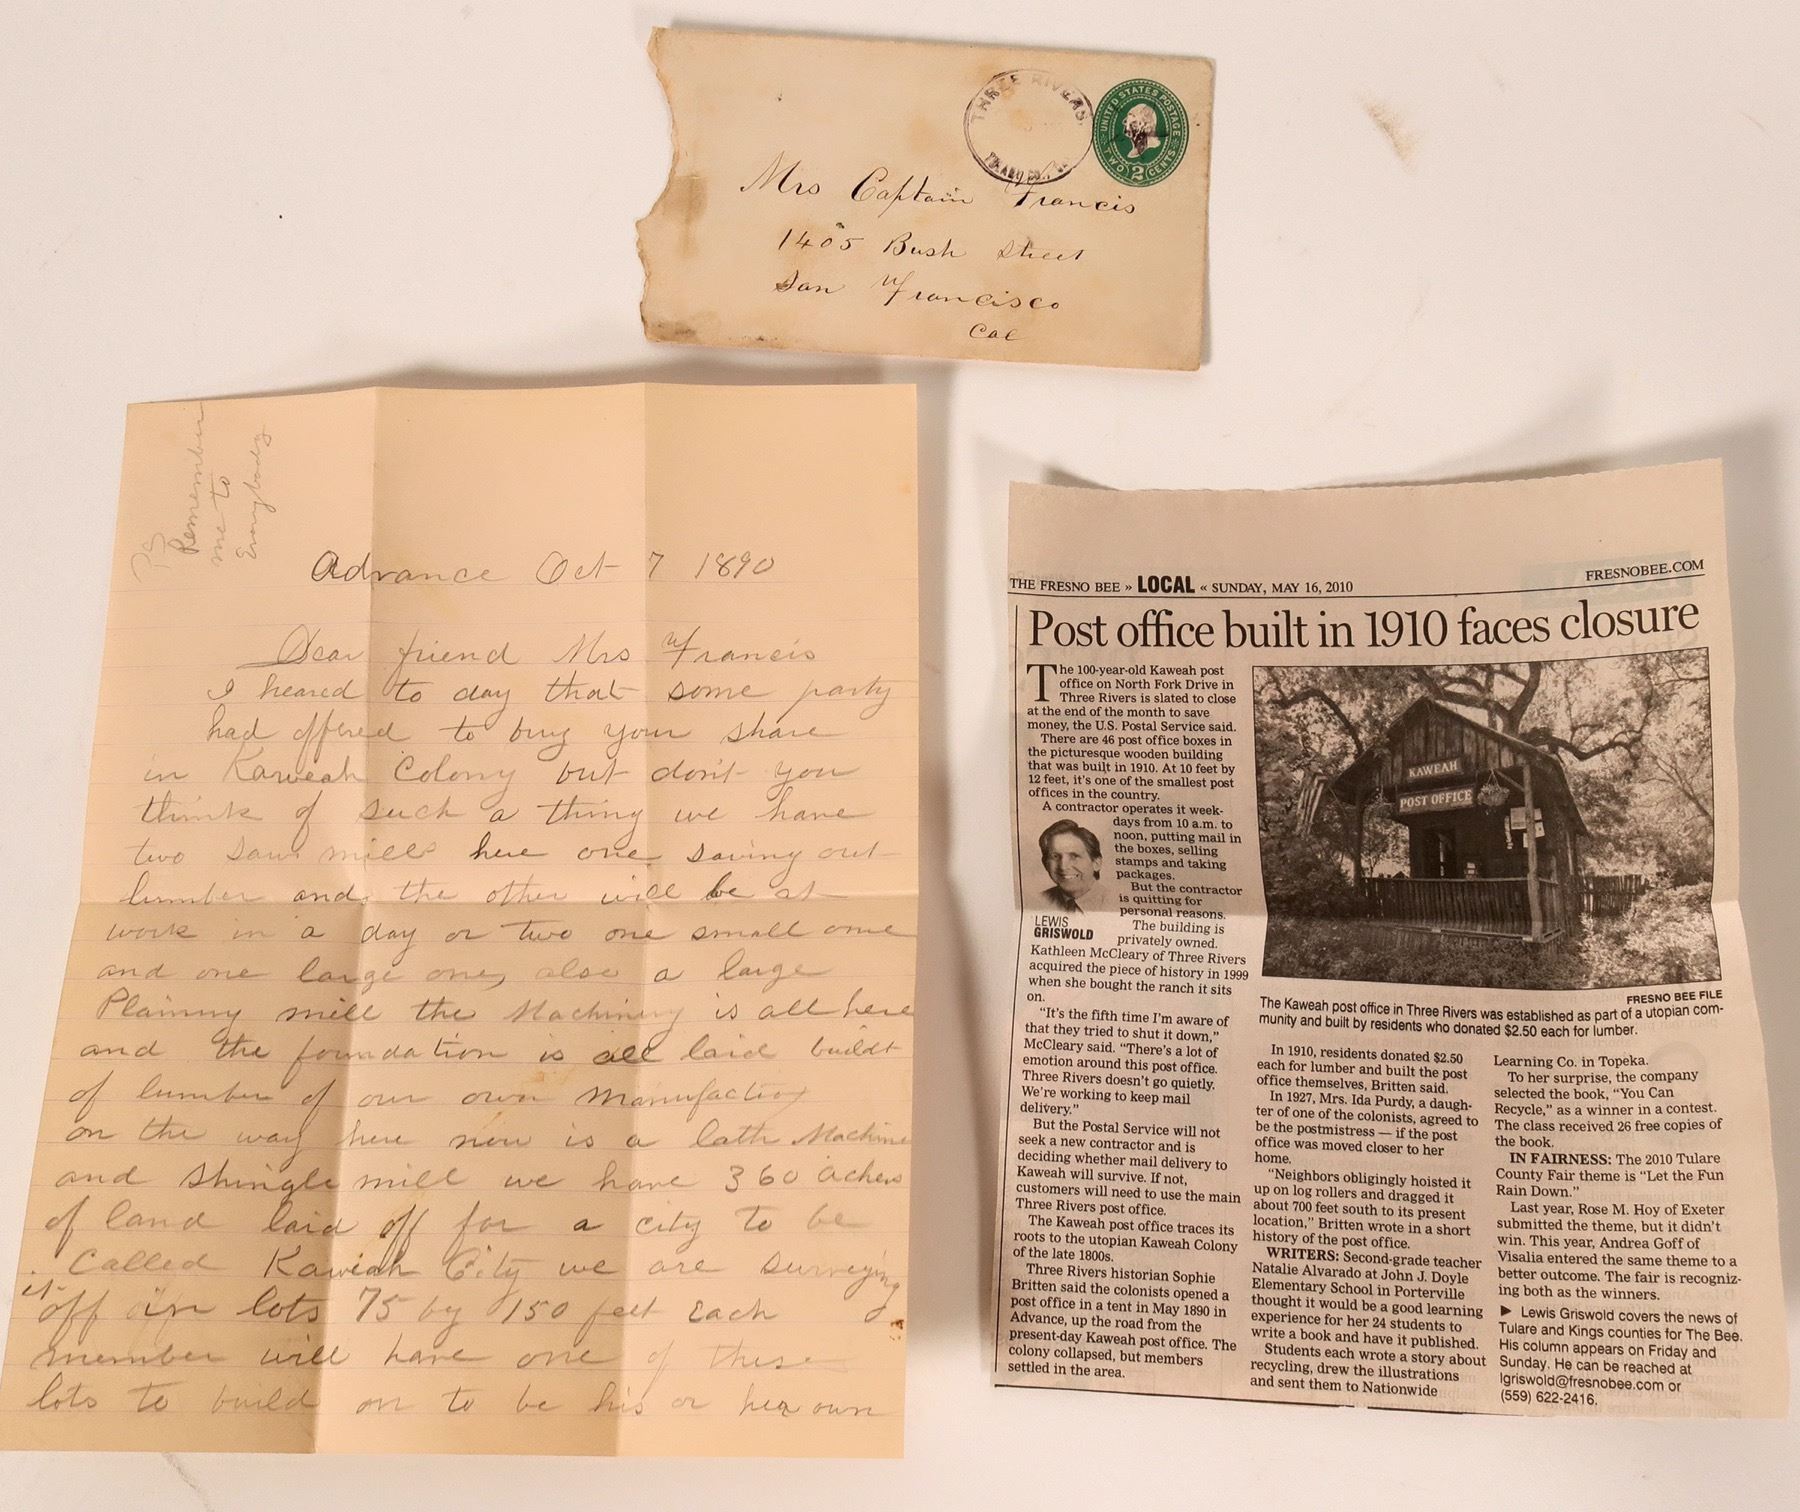 THREE RIVERS,
UNITED STATES POSTAGE
TWO 2 CENTS
Mrs Captain Francis
1405 Bush Street
San Francisco
Cal
PS
Remember
me to
Everybody
Advance Oct 7 1890
Dear friend Mrs Francis
I heared to day that some party
had offered to buy your share
in Kaweah Colony but don't you
think of such a thing we have
two saw mills here one sawing out
lumber and the other will be at
work in a day or two one small one
and one large one, also a large
Plainny mill the Machinery is all here
and the foundation is all laid buildt
of lumber of our own manufaction
on the way here now is a lath Machine
and shingle mill we have 360 achers
of land laid off for a city to be
called Kaweah City we are surveying
it off in lots 75 by 150 feet each
member will have one of these
lots to build on to be his or her own
THE FRESNO BEE » LOCAL « SUNDAY, MAY 16, 2010
FRESNOBEE.COM
Post office built in 1910 faces closure
The 100-year-old Kaweah post
office on North Fork Drive in
Three Rivers is slated to close
at the end of the month to save
money, the U.S. Postal Service said.
There are 46 post office boxes in
the picturesque wooden building
that was built in 1910. At 10 feet by
12 feet, it's one of the smallest post
offices in the country.
A contractor operates it week-
days from 10 a.m. to
noon, putting mail in
the boxes, selling
stamps and taking
packages.
But the contractor
is quitting for
personal reasons.
The building is
privately owned.
LEWIS
GRISWOLD
Kathleen McCleary of Three Rivers
acquired the piece of history in 1999
when she bought the ranch it sits
on.
"It's the fifth time I'm aware of
that they tried to shut it down,"
McCleary said. "There's a lot of
emotion around this post office.
Three Rivers doesn't go quietly.
We're working to keep mail
delivery."
But the Postal Service will not
seek a new contractor and is
deciding whether mail delivery to
Kaweah will survive. If not,
customers will need to use the main
Three Rivers post office.
The Kaweah post office traces its
roots to the utopian Kaweah Colony
of the late 1800s.
Three Rivers historian Sophie
Britten said the colonists opened a
post office in a tent in May 1890 in
Advance, up the road from the
present-day Kaweah post office. The
colony collapsed, but members
settled in the area.
KAWEAH
POST OFFICE
FRESNO BEE FILE
The Kaweah post office in Three Rivers was established as part of a utopian com-
munity and built by residents who donated $2.50 each for lumber.
In 1910, residents donated $2.50
each for lumber and built the post
office themselves, Britten said.
In 1927, Mrs. Ida Purdy, a daugh-
ter of one of the colonists, agreed to
be the postmistress — if the post
office was moved closer to her
home.
"Neighbors obligingly hoisted it
up on log rollers and dragged it
about 700 feet south to its present
location," Britten wrote in a short
history of the post office.
WRITERS: Second-grade teacher
Natalie Alvarado at John J. Doyle
Elementary School in Porterville
thought it would be a good learning
experience for her 24 students to
write a book and have it published.
Students each wrote a story about
recycling, drew the illustrations
and sent them to Nationwide
Learning Co. in Topeka.
To her surprise, the company
selected the book, "You Can
Recycle," as a winner in a contest.
The class received 26 free copies of
the book.
IN FAIRNESS: The 2010 Tulare
County Fair theme is "Let the Fun
Rain Down."
Last year, Rose M. Hoy of Exeter
submitted the theme, but it didn't
win. This year, Andrea Goff of
Visalia entered the same theme to a
better outcome. The fair is recogniz-
ing both as the winners.
▶ Lewis Griswold covers the news of
Tulare and Kings counties for The Bee.
His column appears on Friday and
Sunday. He can be reached at
lgriswold@fresnobee.com or
(559) 622-2416.